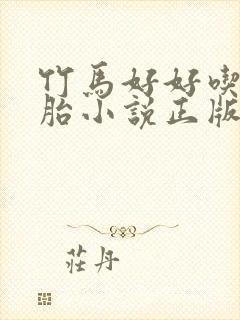 竹馬好好喫
胎小說正版
莊丹